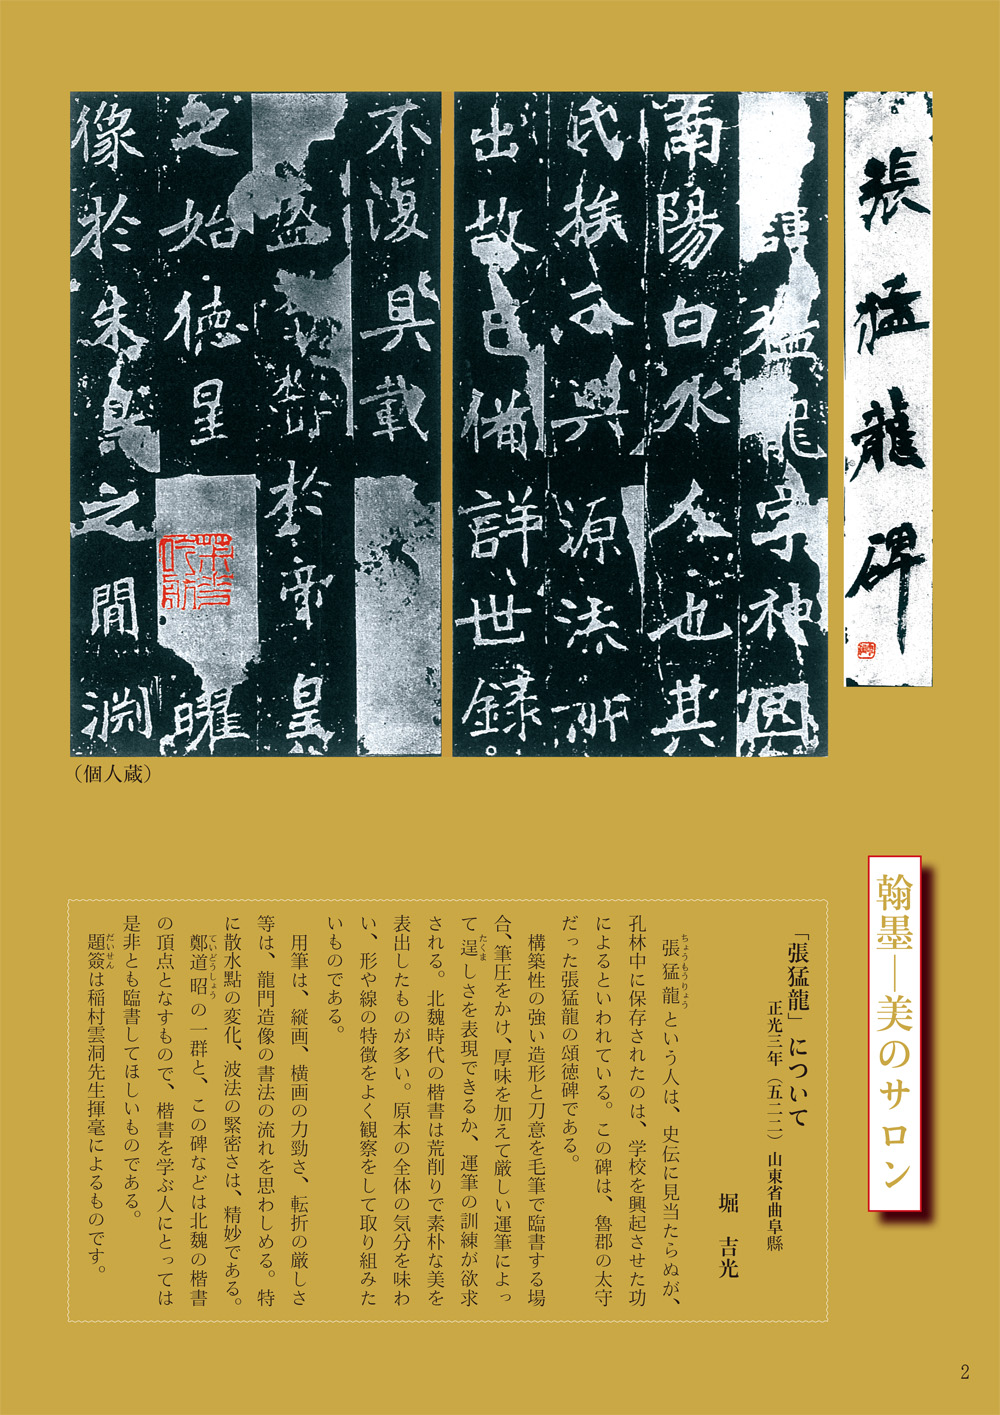 張猛龍碑
猛龍字神囧
南陽白水人也其
氏族分興源流所
出故已備詳世錄
不復具載
盛
於帝皇
之始德星
曜
像於朱鳥之間淵
（個人蔵）
翰墨―美のサロン
「張猛龍」について
正光三年（五二二）山東省曲阜縣
堀　吉光
張猛龍という人は、史伝に見当たらぬが、
ちょうもうりょう
孔林中に保存されたのは、学校を興起させた功
によるといわれている。この碑は、魯郡の太守
だった張猛龍の頌徳碑である。
構築性の強い造形と刀意を毛筆で臨書する場
合、筆圧をかけ、厚味を加えて厳しい運筆によっ
て逞しさを表現できるか、運筆の訓練が欲求
たくま
される。北魏時代の楷書は荒削りで素朴な美を
表出したものが多い。原本の全体の気分を味わ
い、形や線の特徴をよく観察をして取り組みた
いものである。
用筆は、縦画、横画の力勁さ、転折の厳しさ
等は、龍門造像の書法の流れを思わしめる。特
に散水點の変化、波法の緊密さは、精妙である。
鄭道昭の一群と、この碑などは北魏の楷書
ていどうしょう
の頂点となすもので、楷書を学ぶ人にとっては
是非とも臨書してほしいものである。
題簽は稲村雲洞先生揮毫によるものです。
だいせん
2